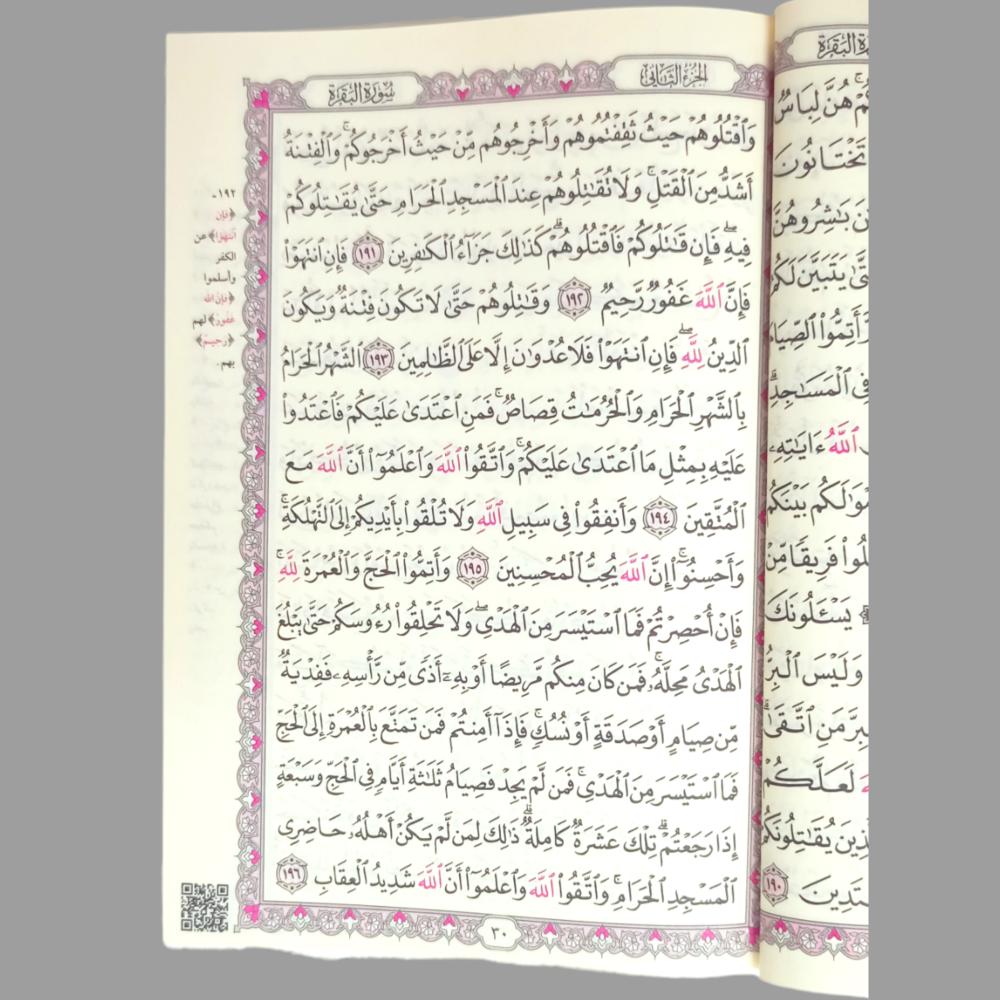 سُورَةُ البَقَرَةِ
الجُزْءُ الثَّانِي
وَٱقْتُلُوهُمْ حَيْثُ ثَقِفْتُمُوهُمْ وَأَخْرِجُوهُم مِّنْ حَيْثُ أَخْرَجُوكُمْ ۚ وَٱلْفِتْنَةُ
أَشَدُّ مِنَ ٱلْقَتْلِ ۚ وَلَا تُقَـٰتِلُوهُمْ عِندَ ٱلْمَسْجِدِ ٱلْحَرَامِ حَتَّىٰ يُقَـٰتِلُوكُمْ
فِيهِ ۖ فَإِن قَـٰتَلُوكُمْ فَٱقْتُلُوهُمْ ۗ كَذَٰلِكَ جَزَآءُ ٱلْكَـٰفِرِينَ ١٩١ فَإِنِ ٱنتَهَوْا۟
فَإِنَّ ٱللَّهَ غَفُورٌ رَّحِيمٌ ١٩٢ وَقَـٰتِلُوهُمْ حَتَّىٰ لَا تَكُونَ فِتْنَةٌ وَيَكُونَ
ٱلدِّينُ لِلَّهِ ۖ فَإِنِ ٱنتَهَوْا۟ فَلَا عُدْوَٰنَ إِلَّا عَلَى ٱلظَّـٰلِمِينَ ١٩٣ ٱلشَّهْرُ ٱلْحَرَامُ
بِٱلشَّهْرِ ٱلْحَرَامِ وَٱلْحُرُمَـٰتُ قِصَاصٌ ۚ فَمَنِ ٱعْتَدَىٰ عَلَيْكُمْ فَٱعْتَدُوا۟
عَلَيْهِ بِمِثْلِ مَا ٱعْتَدَىٰ عَلَيْكُمْ ۚ وَٱتَّقُوا۟ ٱللَّهَ وَٱعْلَمُوٓا۟ أَنَّ ٱللَّهَ مَعَ
ٱلْمُتَّقِينَ ١٩٤ وَأَنفِقُوا۟ فِى سَبِيلِ ٱللَّهِ وَلَا تُلْقُوا۟ بِأَيْدِيكُمْ إِلَى ٱلتَّهْلُكَةِ ۛ
وَأَحْسِنُوٓا۟ ۛ إِنَّ ٱللَّهَ يُحِبُّ ٱلْمُحْسِنِينَ ١٩٥ وَأَتِمُّوا۟ ٱلْحَجَّ وَٱلْعُمْرَةَ لِلَّهِ ۚ
فَإِنْ أُحْصِرْتُمْ فَمَا ٱسْتَيْسَرَ مِنَ ٱلْهَدْىِ ۖ وَلَا تَحْلِقُوا۟ رُءُوسَكُمْ حَتَّىٰ يَبْلُغَ
ٱلْهَدْىُ مَحِلَّهُۥ ۚ فَمَن كَانَ مِنكُم مَّرِيضًا أَوْ بِهِۦٓ أَذًى مِّن رَّأْسِهِۦ فَفِدْيَةٌ
مِّن صِيَامٍ أَوْ صَدَقَةٍ أَوْ نُسُكٍ ۚ فَإِذَآ أَمِنتُمْ فَمَن تَمَتَّعَ بِٱلْعُمْرَةِ إِلَى ٱلْحَجِّ
فَمَا ٱسْتَيْسَرَ مِنَ ٱلْهَدْىِ ۚ فَمَن لَّمْ يَجِدْ فَصِيَامُ ثَلَـٰثَةِ أَيَّامٍ فِى ٱلْحَجِّ وَسَبْعَةٍ
إِذَا رَجَعْتُمْ ۗ تِلْكَ عَشَرَةٌ كَامِلَةٌ ۗ ذَٰلِكَ لِمَن لَّمْ يَكُنْ أَهْلُهُۥ حَاضِرِى
ٱلْمَسْجِدِ ٱلْحَرَامِ ۚ وَٱتَّقُوا۟ ٱللَّهَ وَٱعْلَمُوٓا۟ أَنَّ ٱللَّهَ شَدِيدُ ٱلْعِقَابِ ١٩٦
٣٠
١٩٢-
﴿فإن
انتهوا﴾ عن
الكفر
وأسلموا
﴿فإن الله
غفور﴾ لهم
﴿رحيم﴾
بهم.
هُنَّ لِبَاسٌ
تَخْتَانُونَ
بَـٰشِرُوهُنَّ
يَتَبَيَّنَ لَكُمُ
أَتِمُّوا۟ ٱلصِّيَا
فِى ٱلْمَسَـٰجِدِ ۗ
ٱللَّهُ ءَايَـٰتِهِۦ
بَيْنَكُم
فَرِيقًا مِّنْ
يَسْـَٔلُونَكَ
وَلَيْسَ ٱلْبِرُّ
مَنِ ٱتَّقَىٰ ۗ
لَعَلَّكُمْ
يُقَـٰتِلُونَكُمْ
١٩٠